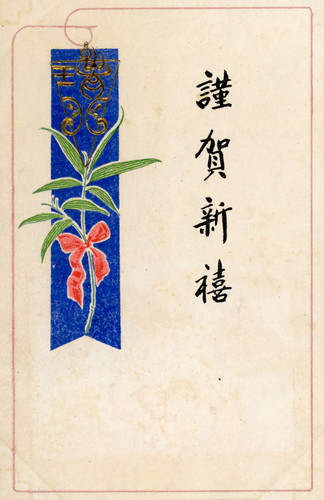 謹賀新禧